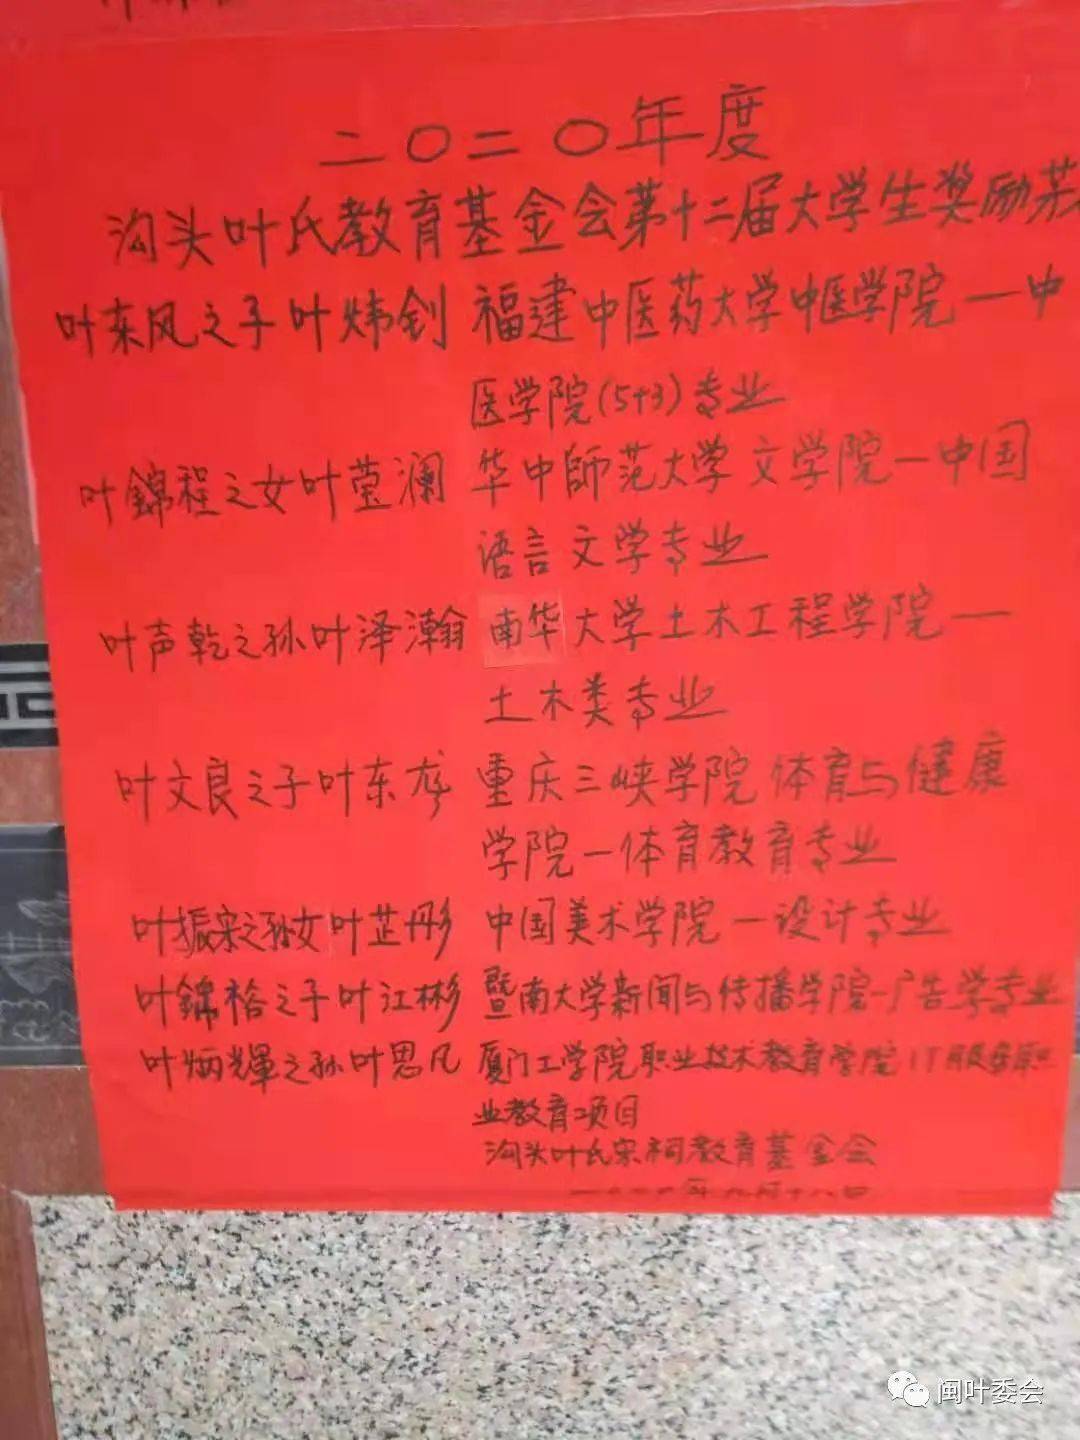 二〇二〇年度
沟头叶氏教育基金会第十二届大学生奖励芳
叶东风之子叶炜钊 福建中医药大学中医学院一中
医学院(5+3)专业
叶錦程之女叶莹澜 华中師范大学文学院一中国
语言文学专业
叶声乾之孙叶泽瀚 南华大学土木工程学院一
土木类专业
叶文良之子叶东 重庆三峡学院体育与健康
学院一体育教育专业
叶振宋之孙女叶芷彤 中国美术学院一设计专业
叶錦裕之子叶江彬 暨南大学新闻与传播学院-广告学专业
叶炳輝之孙叶思凡 厦门工学院职业技术教育学院IT服务职
业教育项目
沟头叶氏宗祠教育基金会
年九月十八日
闽叶委会